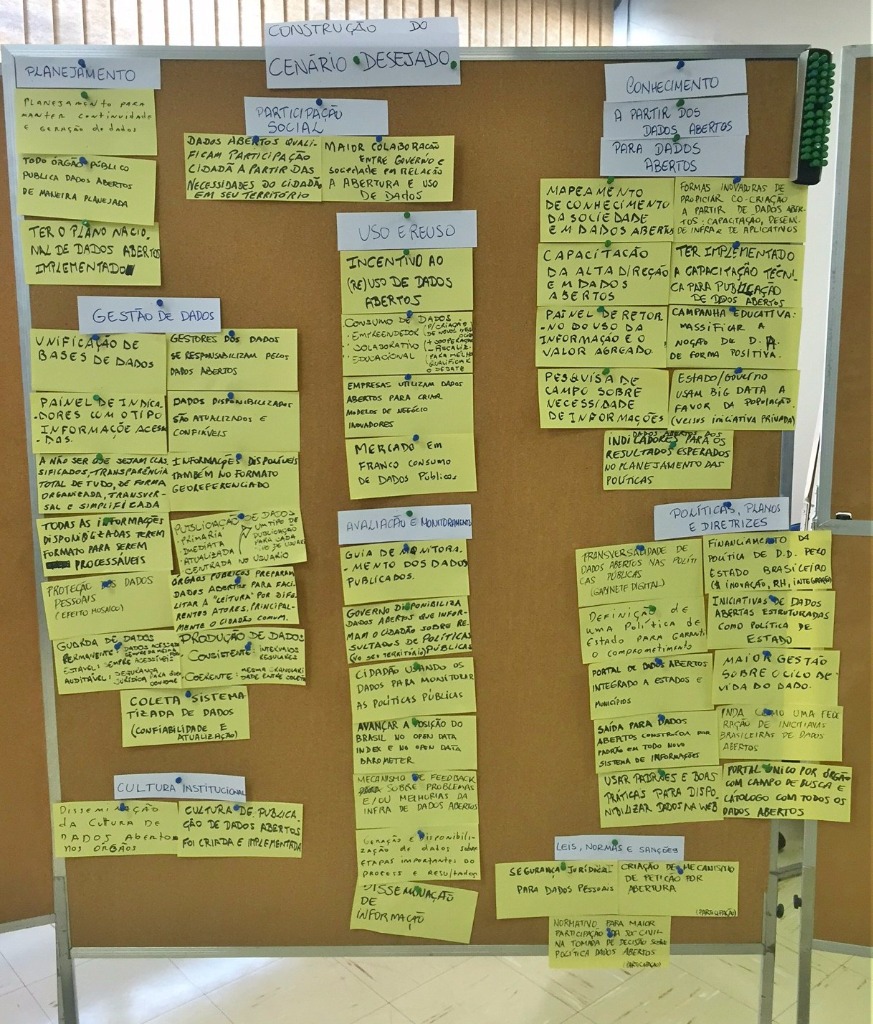 CONSTRUÇÃO DO
CENÁRIO DESEJADO
PLANEJAMENTO
PLANEJAMENTO PARA
MANTER CONTINUIDADE
E GERAÇÃO DE DADOS
TODO ÓRGÃO PÚBLICO
PUBLICA DADOS ABERTOS
DE MANEIRA PLANEJADA
TER O PLANO NACIO
NAL DE DADOS ABERTOS
IMPLEMENTADO
GESTÃO DE DADOS
UNIFICAÇÃO DE
BASES DE DADOS
GESTORES DOS DADOS
SE RESPONSABILIZAM PELOS
DADOS ABERTOS
PAINEL DE INDICA
DORES COM O TIPO
INFORMAÇÕE ACESA
DAS.
DADOS DISPONIBILIZADOS
SÃO ATUALIZADOS E
CONFIÁVEIS
A NÃO SER QUE SEJAM CLAS
SIFICADOS, TRANSPARÊNCIA
TOTAL DE TUDO, DE FORMA
ORGANIZADA, TRANSVER
SAL E SIMPLIFICADA
INFORMAÇÕES DISPOLÍVEIS
TAMBÉM NO FORMATO
GEOREFERENCIADO
TODAS AS INFORMAÇÕES
DISPONIBILIZADAS TEREM
FORMATO PARA SEREM
PROCESSÁVEIS
PUBLICAÇÃO DE DADOS
PRIMÁRIA
IMEDIATA
ATUALIZADA
CENTRADA NO USUÁRIO
UM TIPO DE
PUBLICAÇÃO
PARA CADA
PROTEÇÃO DOS DADOS
PESSOAIS
(EFEITO MOSAICO)
ÓRGÃOS PÚBLICOS PREPARAM
DADOS ABERTOS PARA FACI
LITAR A "LEITURA" POR DIFE
RENTES ATORES, PRINCIPAL
MENTE O CIDADÃO COMUM.
GUARDA DE DADOS
PERMANENTE:
ESTÁVEL: SEMPRE ACESSÍVEIS
AUDITÁVEL: SEGURANÇA
JURÍDICA PARA
PRODUÇÃO DE DADOS
CONSISTENTE: INTERVALOS
REGULARES
COERENTE:
COLETA SISTEMA
TIZADA DE DADOS
(CONFIABILIDADE E
ATUALIZAÇÃO)
CULTURA INSTITUCIONAL
DISSEMINAÇÃO
DA CULTURA DE
DADOS ABERTOS
NOS ÓRGÃOS
CULTURA DE PUBLICA
ÇÃO DE DADOS ABERTOS
FOI CRIADA E IMPLEMENTADA
PARTICIPAÇÃO
SOCIAL
DADOS ABERTOS QUALI
FICAM PARTICIPAÇÃO
CIDADÃ A PARTIR DAS
NECESSIDADES DO CIDADÃO
EM SEU TERRITÓRIO
MAIOR COLABORAÇÃO
ENTRE GOVERNO E
SOCIEDADE EM RELAÇÃO
A ABERTURA E USO
DE DADOS
USO E REUSO
INCENTIVO AO
(RE)USO DE DADOS
ABERTOS
CONSUMO DE DADOS
· EMPREENDEDOR
· COLABORATIVO
· EDUCACIONAL
+ COOPERAÇÃO
PARA MELHOR
QUALIFICAR
O DEBATE
EMPRESAS UTILIZAM DADOS
ABERTOS PARA CRIAR
MODELOS DE NEGÓCIO
INOVADORES
MERCADO EM
FRANCO CONSUMO
DE DADOS PÚBLICOS
AVALIAÇÃO E MONITORAMENTO
GUIA DE MONITORA
MENTO DOS DADOS
PUBLICADOS.
GOVERNO DISPONIBILIZA
DADOS ABERTOS QUE INFOR
MAM O CIDADÃO SOBRE RE
SULTADOS DE POLÍTICAS
PÚBLICAS
CIDADÃO USANDO OS
DADOS PARA MONITORAR
AS POLÍTICAS PÚBLICAS
AVANÇAR A POSIÇÃO DO
BRASIL NO OPEN DATA
INDEX E NO OPEN DATA
BAROMETER
MECANISMO DE FEEDBACK
SOBRE PROBLEMAS
E/OU MELHORIAS DA
INFRA DE DADOS ABERTOS
GERAÇÃO E DISPONIBILI
ZAÇÃO DE DADOS SOBRE
ETAPAS IMPORTANTES DO
PROCESSO E RESULTADOS
DISSEMINAÇÃO
DE
INFORMAÇÃO
CONHECIMENTO
A PARTIR DOS
DADOS ABERTOS
PARA DADOS
ABERTOS
MAPEAMENTO
DE CONHECIMENTO
DA SOCIEDADE
EM DADOS ABERTOS
FORMAS INOVADORAS DE
PROPICIAR CO-CRIAÇÃO
A PARTIR DE DADOS ABER
TOS: CAPACITAÇÃO, DESENV.
DE INFRA E DE APLICATIVOS
CAPACITAÇÃO
DA ALTA DIREÇÃO
EM DADOS
ABERTOS
TER IMPLEMENTADO
A CAPACITAÇÃO TÉCNI
CA PARA PUBLICAÇÃO
DE DADOS ABERTOS
PAINEL DE RETOR
NO DO USO DA
INFORMAÇÃO E O
VALOR AGREGADO.
CAMPANHA EDUCATIVA:
MASSIFICAR A
NOÇÃO DE D.A.
DE FORMA POSITIVA.
PESQUISA DE
CAMPO SOBRE
NECESSIDADE
DE INFORMAÇÕES
ESTADO/GOVERNO
USAM BIG DATA A
FAVOR DA POPULAÇÃO.
(VERSUS INICIATIVA PRIVADA)
INDICADORES PARA OS
RESULTADOS ESPERADOS
NO PLANEJAMENTO DAS
POLÍTICAS
POLÍTICAS, PLANOS
E DIRETRIZES
TRANSVERSALIDADE DE
DADOS ABERTOS NAS POLÍTI
CAS PÚBLICAS
(GABINETE DIGITAL)
FINANCIAMENTO DA
POLÍTICA DE D.D. PELO
ESTADO BRASILEIRO
($ INOVAÇÃO, RH, INTEGRAÇÃO)
DEFINIÇÃO DE
UMA POLÍTICA DE
ESTADO PARA GARANTIR
O COMPROMETIMENTO
INICIATIVAS DE DADOS
ABERTAS ESTRUTURADAS
COMO POLÍTICA DE
ESTADO
PORTAL DE DADOS ABERTOS
INTEGRADO A ESTADOS E
MUNICÍPIOS
MAIOR GESTÃO
SOBRE O CILO DE
VIDA DO DADO.
SAÍDA PARA DADOS
ABERTOS CONSTRUÍDA POR
PADRÃO EM TODO NOVO
SISTEMA DE INFORMAÇÕES
INDA COMO UMA FEDE
RAÇÃO DE INICIATIVAS
BRASILEIRAS DE DADOS
ABERTOS
USAR PADRÕES E BOAS
PRÁTICAS PARA DISPO
NIBILIZAR DADOS NA WEB
PORTAL ÚNICO POR ÓRGÃO
COM CAMPO DE BUSCA E
CATÓLOGO COM TODOS OS
DADOS ABERTOS
LEIS, NORMAS E SANÇÕES
SEGURANÇA JURÍDICA
PARA DADOS PESSOAIS
CRIAÇÃO DE MECANISMO
DE PETIÇÃO POR
ABERTURA
(PARTICIPAÇÃO)
NORMATIVO PARA MAIOR
PARTICIPAÇÃO DA SOC CIVIL
NA TOMADA DE DECISÃO SOBRE
POLÍTICA DADOS ABERTOS
(PARTICIPAÇÃO)